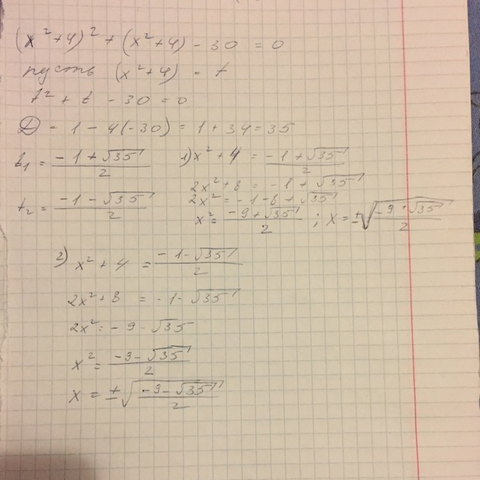 (x²+4)² + (x²+4) - 30 = 0
пусть (x²+4) - t
t² + t - 30 = 0
D - 1 - 4(-30) = 1 + 34 = 35
t₁ = (-1 + √35)/2
t₂ = (-1 - √35)/2
1) x² + 4 = (-1 + √35)/2
2x² + 8 = -1 + √35
2x² = -1 - 8 + √35
x² = (-9 + √35)/2 ; x = ±√((-9 + √35)/2)
2) x² + 4 = (-1 - √35)/2
2x² + 8 = -1 - √35
2x² = -9 - √35
x² = (-9 - √35)/2
x = ±√((-9 - √35)/2)